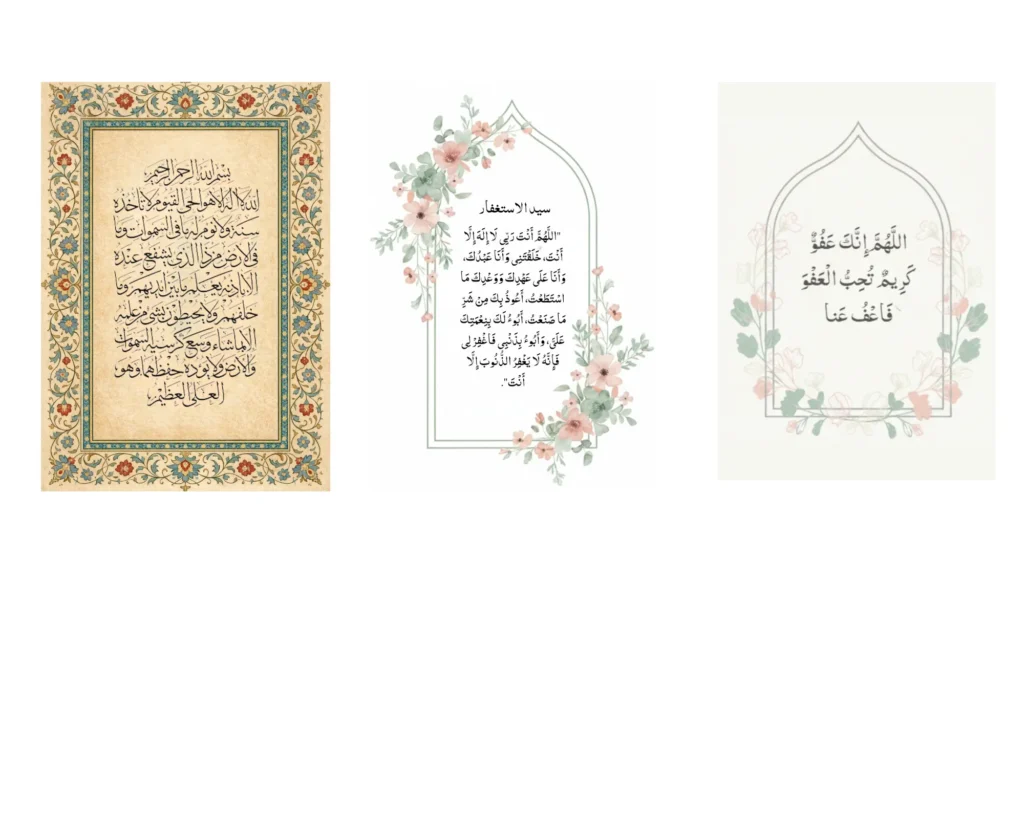 بسم الله الرحمن الرحيم
الله لا اله الا هو الحي القيوم لا تاخذه
سنة ولا نوم له ما في السموات وما
في الارض من ذا الذي يشفع عنده
الا باذنه يعلم ما بين ايديهم وما
خلفهم ولا يحيطون بشي من علمه
الا بما شاء وسع كرسيه السموات
والارض ولا يوده حفظهما وهو
العلي العظيم
سيد الاستغفار
"اللَّهُمَّ أَنْتَ رَبِّي لَا إِلَهَ إِلَّا
أَنْتَ، خَلَقْتَنِي وَأَنَا عَبْدُكَ،
وَأَنَا عَلَى عَهْدِكَ وَوَعْدِكَ مَا
اسْتَطَعْتُ، أَعُوذُ بِكَ مِنْ شَرِّ
مَا صَنَعْتُ، أَبُوءُ لَكَ بِنِعْمَتِكَ
عَلَيَّ، وَأَبُوءُ بِذَنْبِي فَاغْفِرْ لِي
فَإِنَّهُ لَا يَغْفِرُ الذُّنُوبَ إِلَّا
أَنْتَ".
اللَّهُمَّ إِنَّكَ عَفُوٌّ
كَرِيمٌ تُحِبُّ الْعَفْوَ
فَاعْفُ عَنا